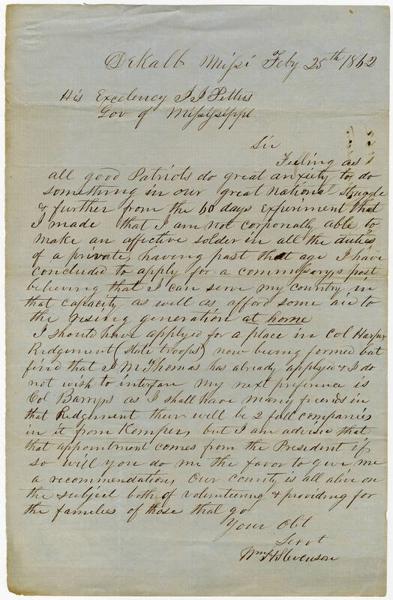 DeKalb Missi Feby 25th 1862
His Excelency J J Pettus
Gov of Mississippi
Sir
Feeling as
all good Patriots do great anxiety to do
something in our great national struggle
& further from the 60 days Experiment that
I made that I am not corporally able to
make an affective solder in all the duties
of a private, having past that age I have
concluded to apply for a commissarys post
believing that I can serve my country in
that capacity as well as afford some aid to
the rising generation at home
I should have applyed for a place in Col Harper
Ridgement (State troops) now being formed but
find that J M Thomas has already applyed & I do
not wish to interfare My next preferance is
Col Barrys as I shall have many friends in
that Ridgement there will be 2 full companies
in it from Kemper, but I am advised that
that appointment comes from the President if
so will you do me the favor to give me
a recommendation, Our county is all alive on
the subject both of volunteering & providing for
the families of those that go
Your Obt
Servt
Wm H Stevenson